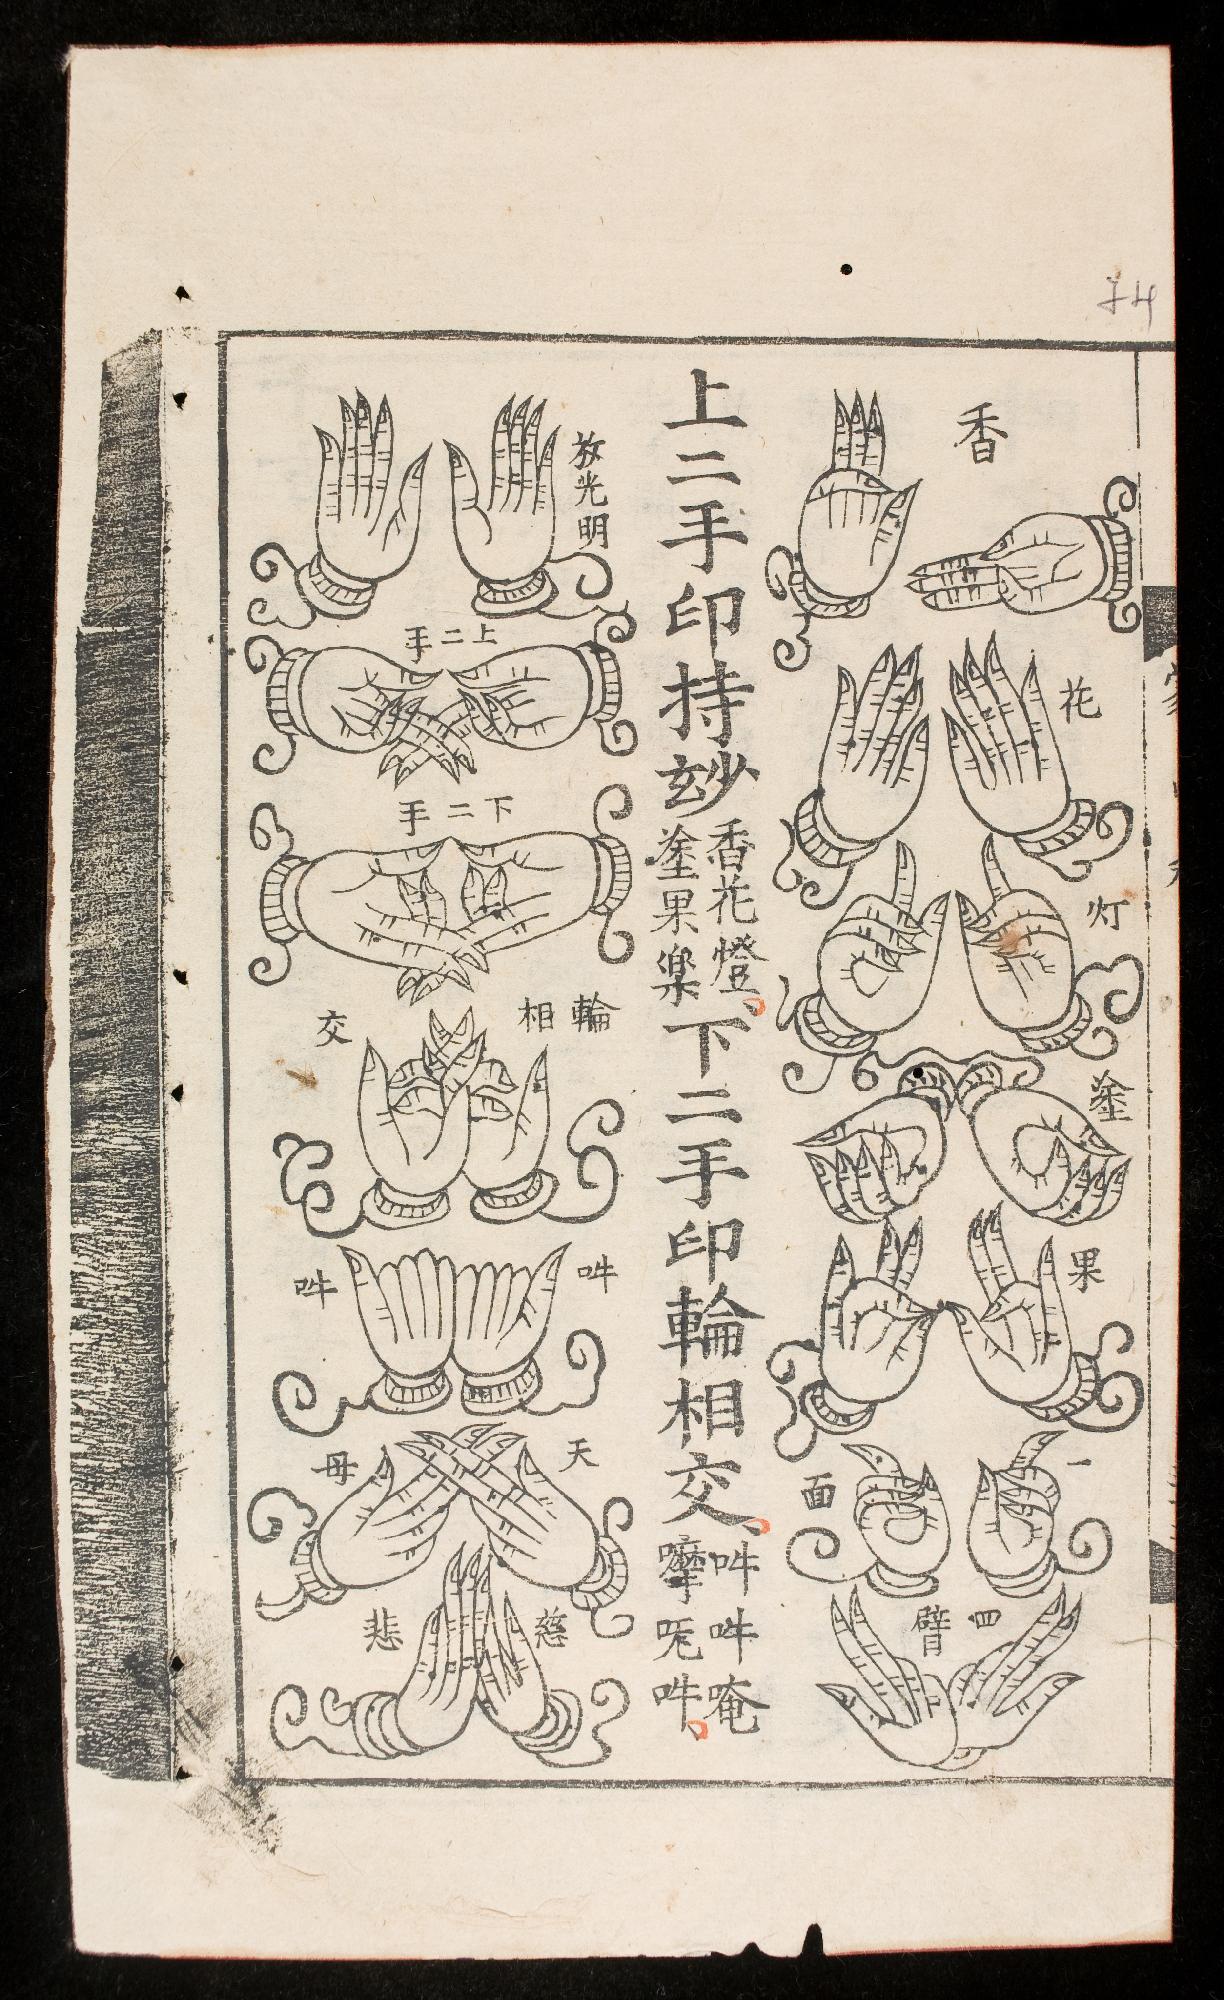 香
花
灯
塗
果
一面
四臂
上二手印持妙香花燈塗果樂下二手印輪相交吽吽唵𡀔呢吽
放光明
上二手
下二手
輪相交
吽吽
天母
慈悲
74